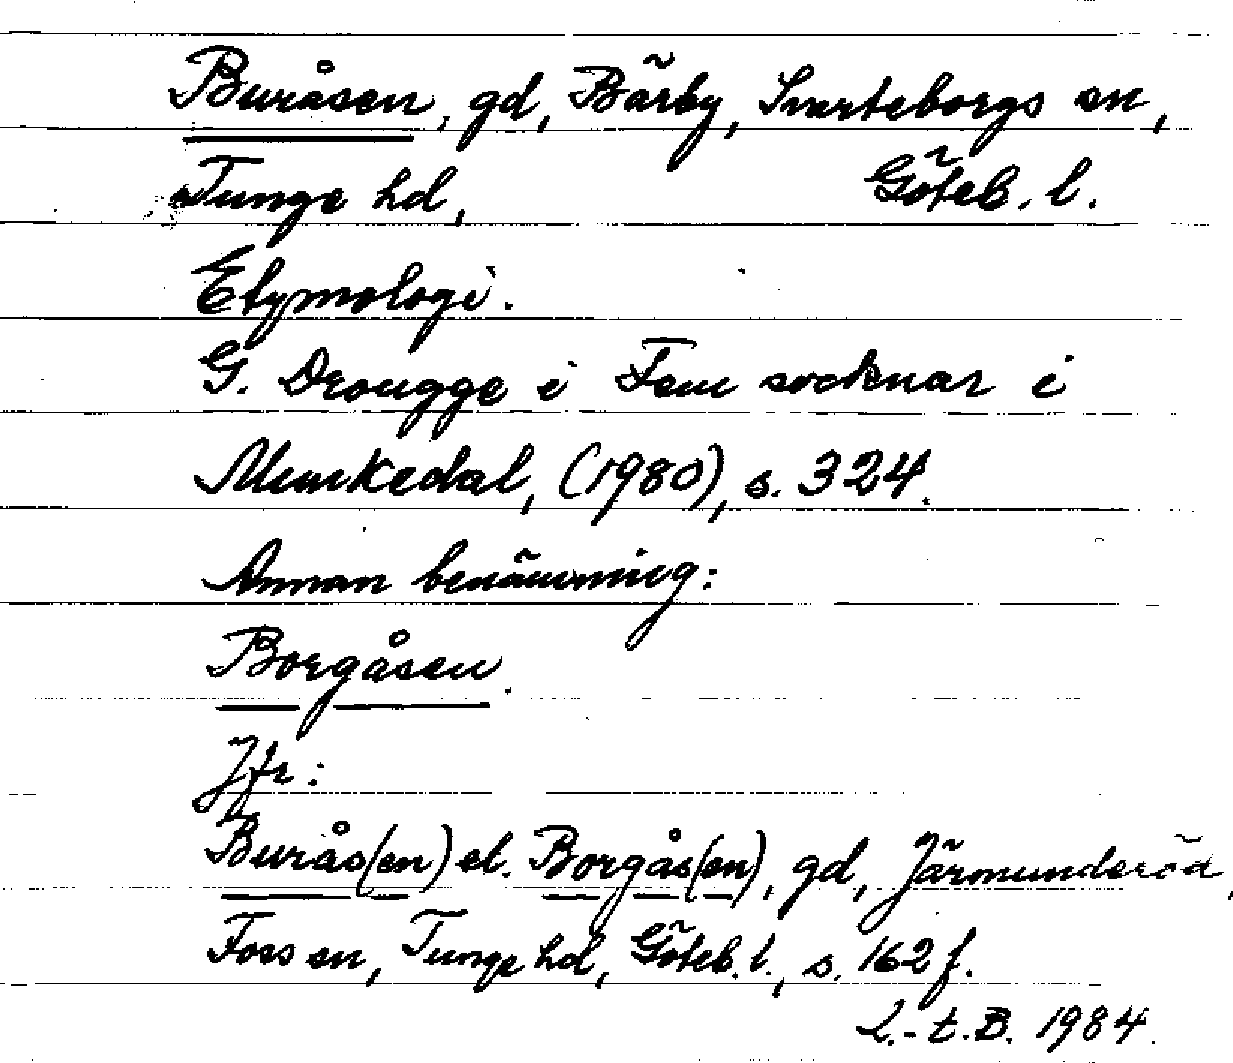 Buråsen, gd, Bärby, Svarteborgs sn,
Tunge hd, Göteb. l.
Etymologi.
G. Drougge i Fem socknar i
Munkedal, (1980), s. 324.
Annan benämning:
Borgåsen.
Jfr:
Burås(en) el. Borgås(en), gd, Järmunderöd,
Foss sn, Tunge hd, Göteb. l., s. 162 f.
L.-t.B. 1984.